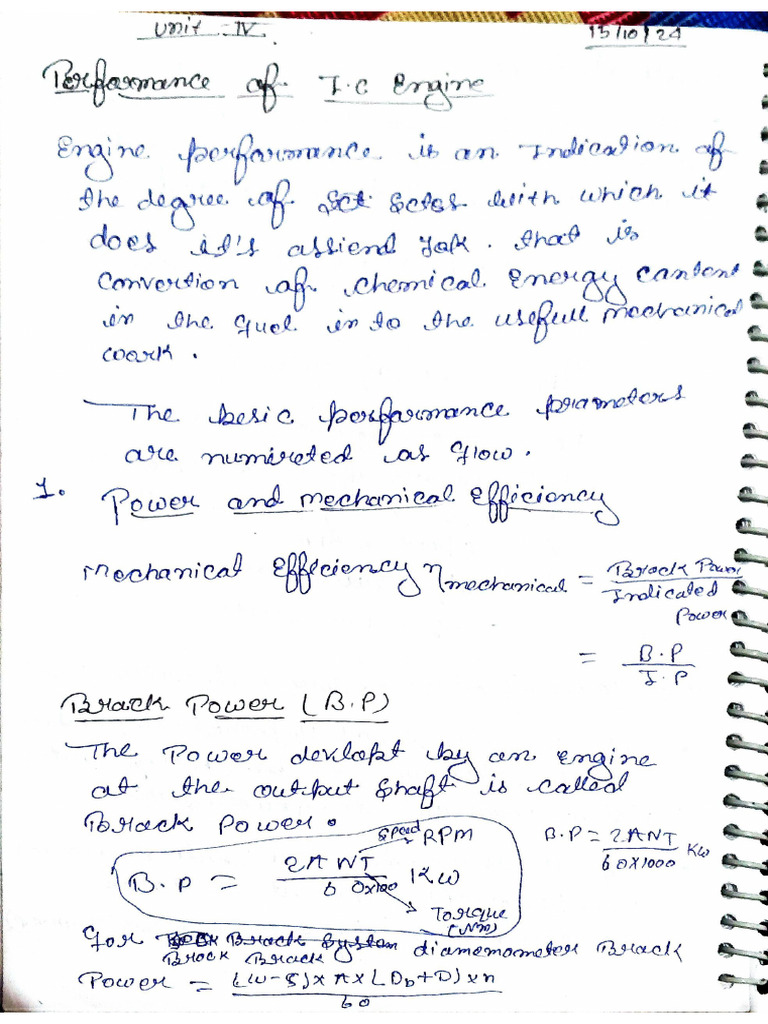 Unit - IV 15/10/24
Performance of I.C Engine
Engine performance is an Indication of
the degree of with which it
does it's assiend . that is
convertion of chemical energy cantent
in the fuel in to the usefull mechanical
work.
The besic performance prameters
are numireted as flow.
1. Power and mechanical Efficiency
Mechanical Efficiency η mechanical = Brack Power / Indicated Power
= B.P / I.P
Brack Power (B.P)
The Power devlopt by an engine
at the output shaft is called
Brack Power.
B.P = 2πNT / 60x1000 Kw
speed RPM
Torque (Nm)
B.P = 2πNT / 60X1000 Kw
for Brack System diamemometer Brack
Brock Brack
Power = (W-S) x π x (Db+D) x n / 60